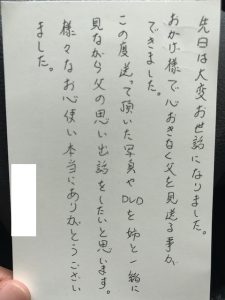 先日は大変お世話になりました。
おかげ様で心おきなく父を見送る事が
できました。
この度送って頂いた写真やDVDを姉と一緒に
見ながら父の思い出話をしたいと思います。
様々なお心使い本当にありがとうござい
ました。